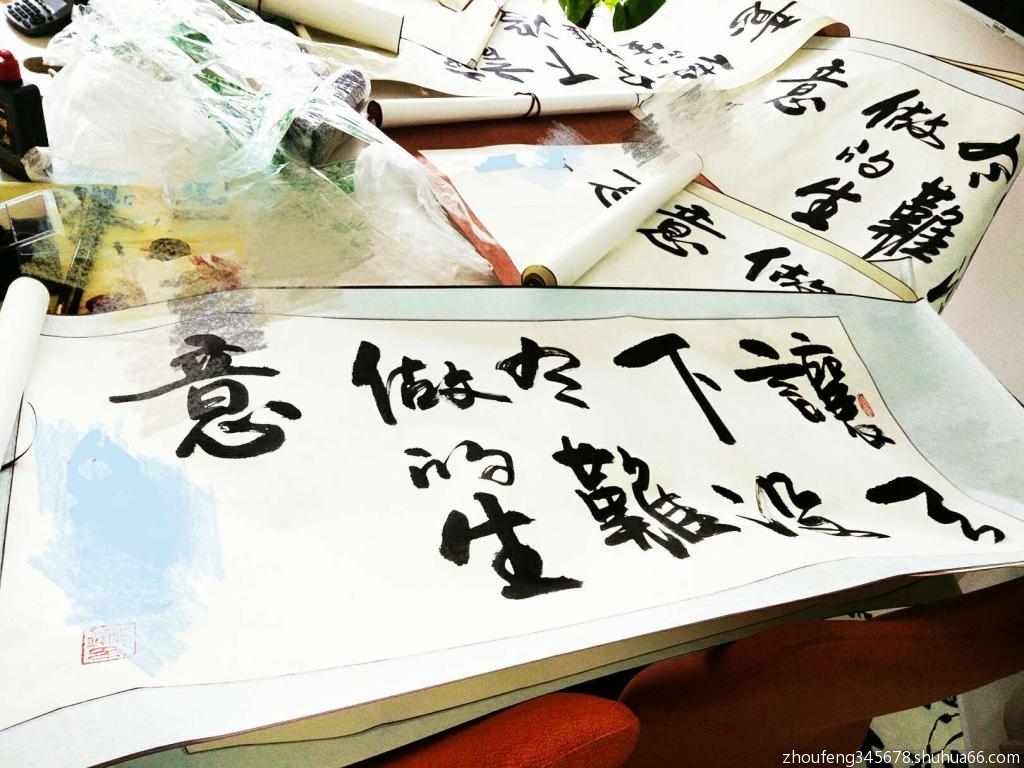 讓天
下没
有難
做的生
意
有難
做的生
意
做
意
下
zhoufeng345678.shuhua66.com